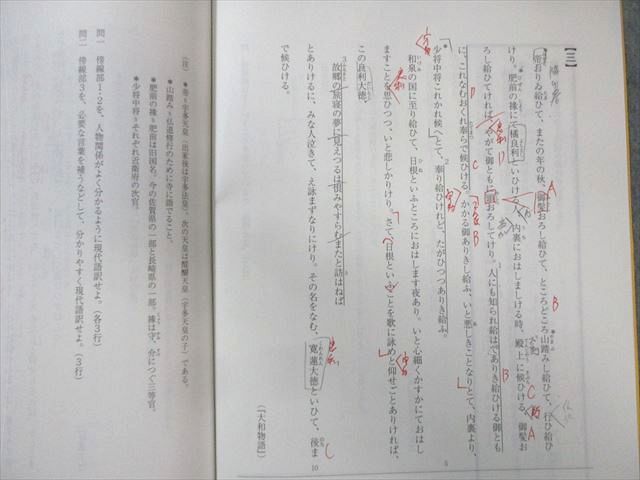 【三】
帝おりゐ給ひて、またの年の秋、御髪おろし給ひて、ところどころ山踏みし給ひて、行ひ給ひ
けり。肥前の掾にて橘良利といひける人、内裏におはしましける時、殿上に候ひける、御髪お
ろし給ひてければ、やがて御ともに頭おろしてけり。人にも知られ給はでありき給ひける御とも
に、これなむおくれ奉らで候ひける。かかる御ありきし給ふ、いと悪しきことなりとて、内裏より、
少将中将これかれ候へとて、奉り給ひけれど、たがひつつありき給ふ。
和泉の国に至り給ひて、日根といふところにおはします夜あり。いと心細くかすかにておはし
ますことを思ひつつ、いと悲しかりけり。さて、日根といふことを歌に詠めと仰せごとありければ、
この良利大徳、
故郷の旅寝の夢に見えつるは恨みやすらむまたと訪はねば
とありけるに、みな人泣きて、え詠まずなりにけり。その名をなむ、寛蓮大徳といひて、後ま
で候ひける。
（『大和物語』）
（注）
＊帝＝宇多天皇（出家後は宇多法皇）。次の天皇は醍醐天皇（宇多天皇の子）である。
＊山踏み＝仏道修行のために寺に詣でること。
＊肥前の掾＝肥前は旧国名。今の佐賀県の一部と長崎県の一部。掾は守、介につぐ三等官。
＊少将中将＝それぞれ近衛府の次官。
問一　傍線部1・2を、人物関係がよく分かるように現代語訳せよ。（各3行）
問二　傍線部3を、必要な言葉を補うなどして、分かりやすく現代語訳せよ。（3行）